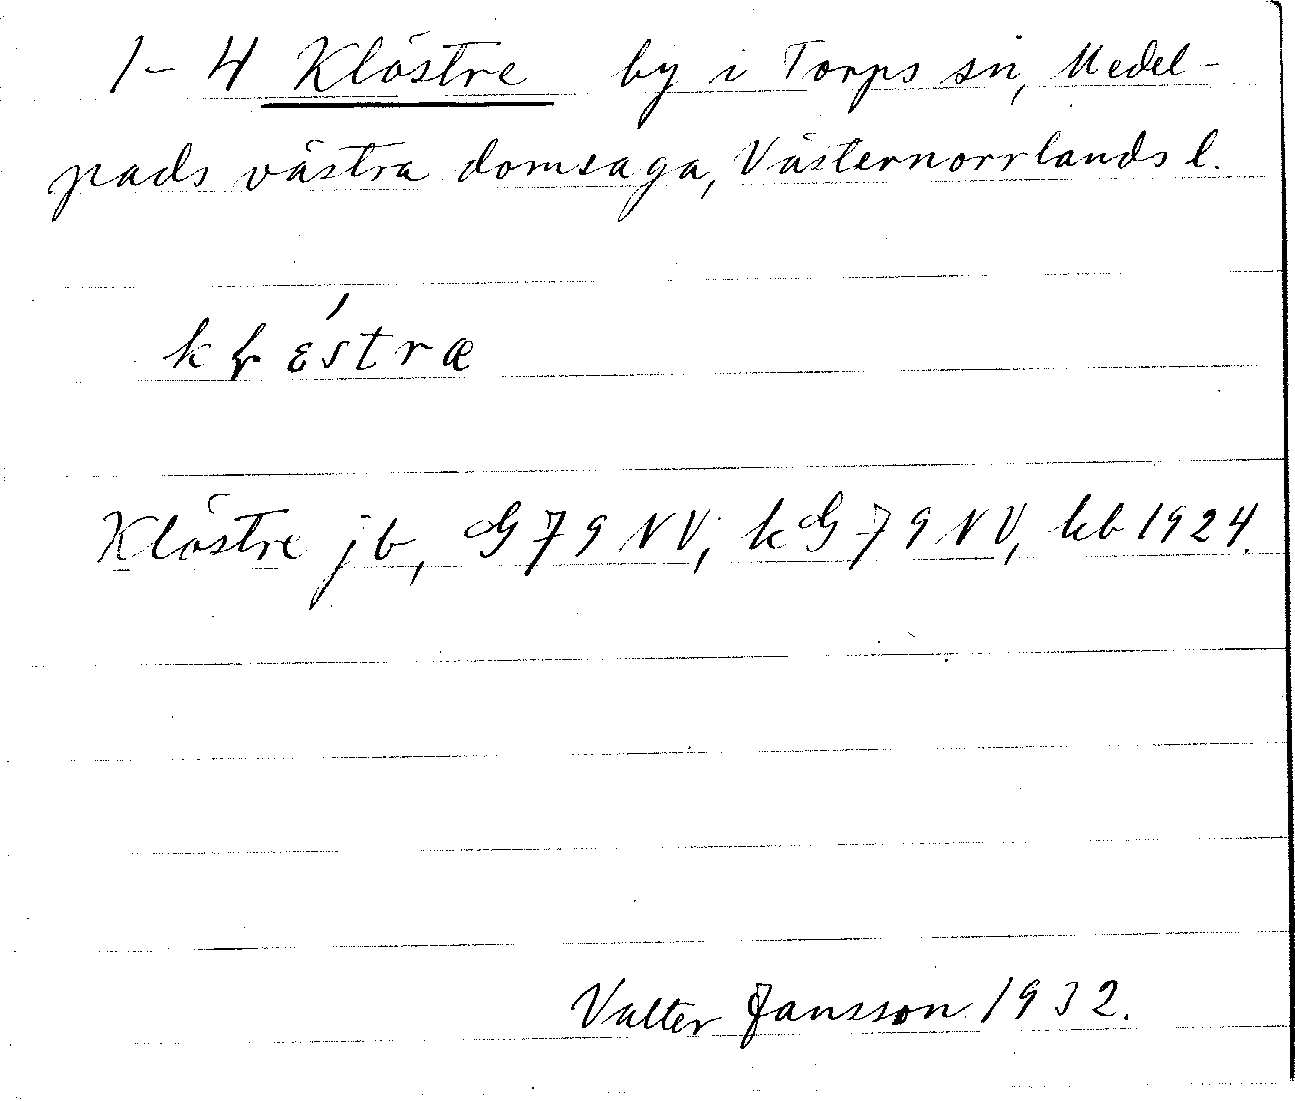 1-4 Klöstre by i Torps sn, Medel-
pads västra domsaga, Västernorrlands l.
Klöstre jb, G 79 NV, kG 79 NV, kb 1924.
Valter Jansson 1932.